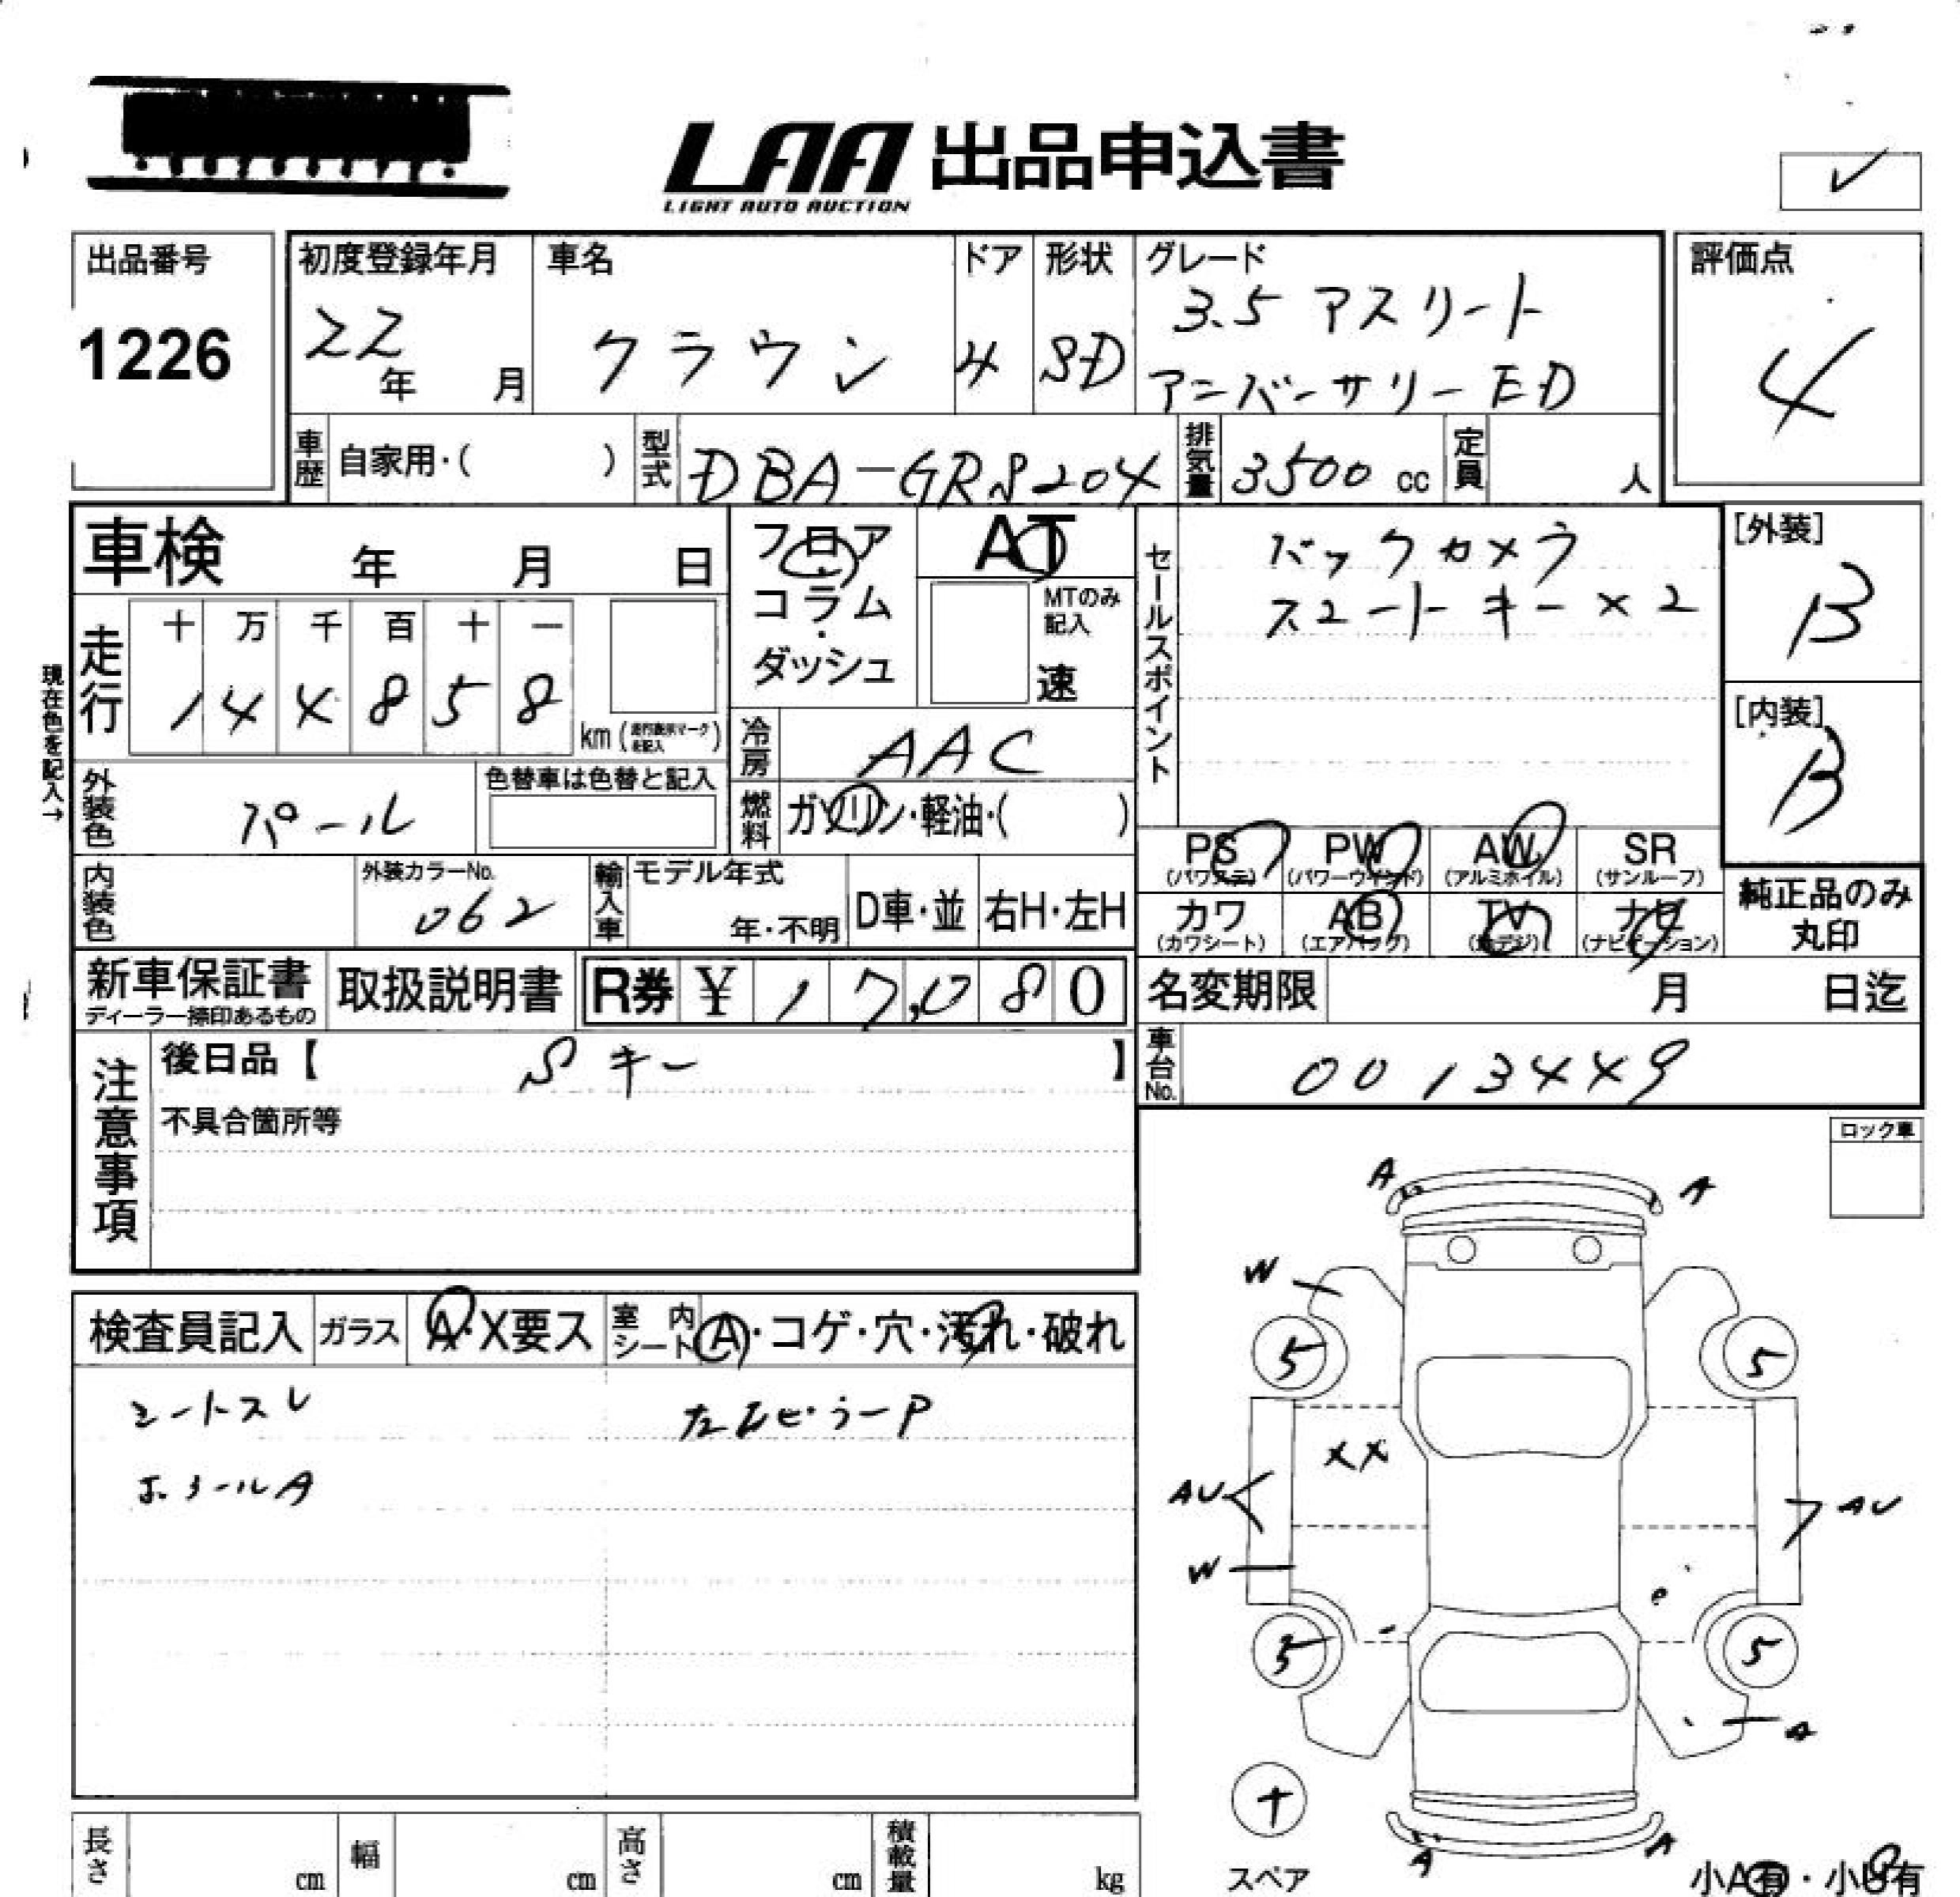 LAA 出品申込書
LIGHT AUTO AUCTION
出品番号
1226
初度登録年月
22
年 月
車名
クラウン
ドア
4
形状
SD
グレード
3.5 アスリート
アニバーサリーED
評価点
4
車歴
自家用・( )
型式
DBA-GRS204
排気量
3500 cc
定員
人
車検 年 月 日
フロア
・
コラム
・
ダッシュ
AT
MTのみ
記入
速
セールスポイント
バックカメラ
スマートキー×2
[外装]
B
[内装]
B
現在色を記入→
走行
十 万 千 百 十 一
1 4 4 8 5 8
km (走行表示マークを記入)
冷房
AAC
外装色
パール
色替車は色替と記入
燃料
ガソリン・軽油・( )
PS
(パワステ)
PW
(パワーウインド)
AW
(アルミホイル)
SR
(サンルーフ)
内装色
外装カラーNo.
062
輸入車
モデル年式
年・不明
D車・並
右H・左H
カワ
(カワシート)
AB
(エアバッグ)
TV
(地デジ)
ナビ
(ナビゲーション)
純正品のみ
丸印
新車保証書
ディーラー捺印あるもの
取扱説明書
R券 ¥ 17,080
名変期限 月 日迄
注意事項
後日品【 Sキー 】
車台No.
0013449
不具合箇所等
ロック車
検査員記入
ガラス
A・X要ス
室内シート
A・コゲ・穴・汚れ・破れ
シートスレ
ホイールA
A
A
W
5
5
XX
AU
AU
W
5
5
A
A
A
スペア
小A有・小U有
長さ
cm
幅
cm
高さ
cm
積載量
kg